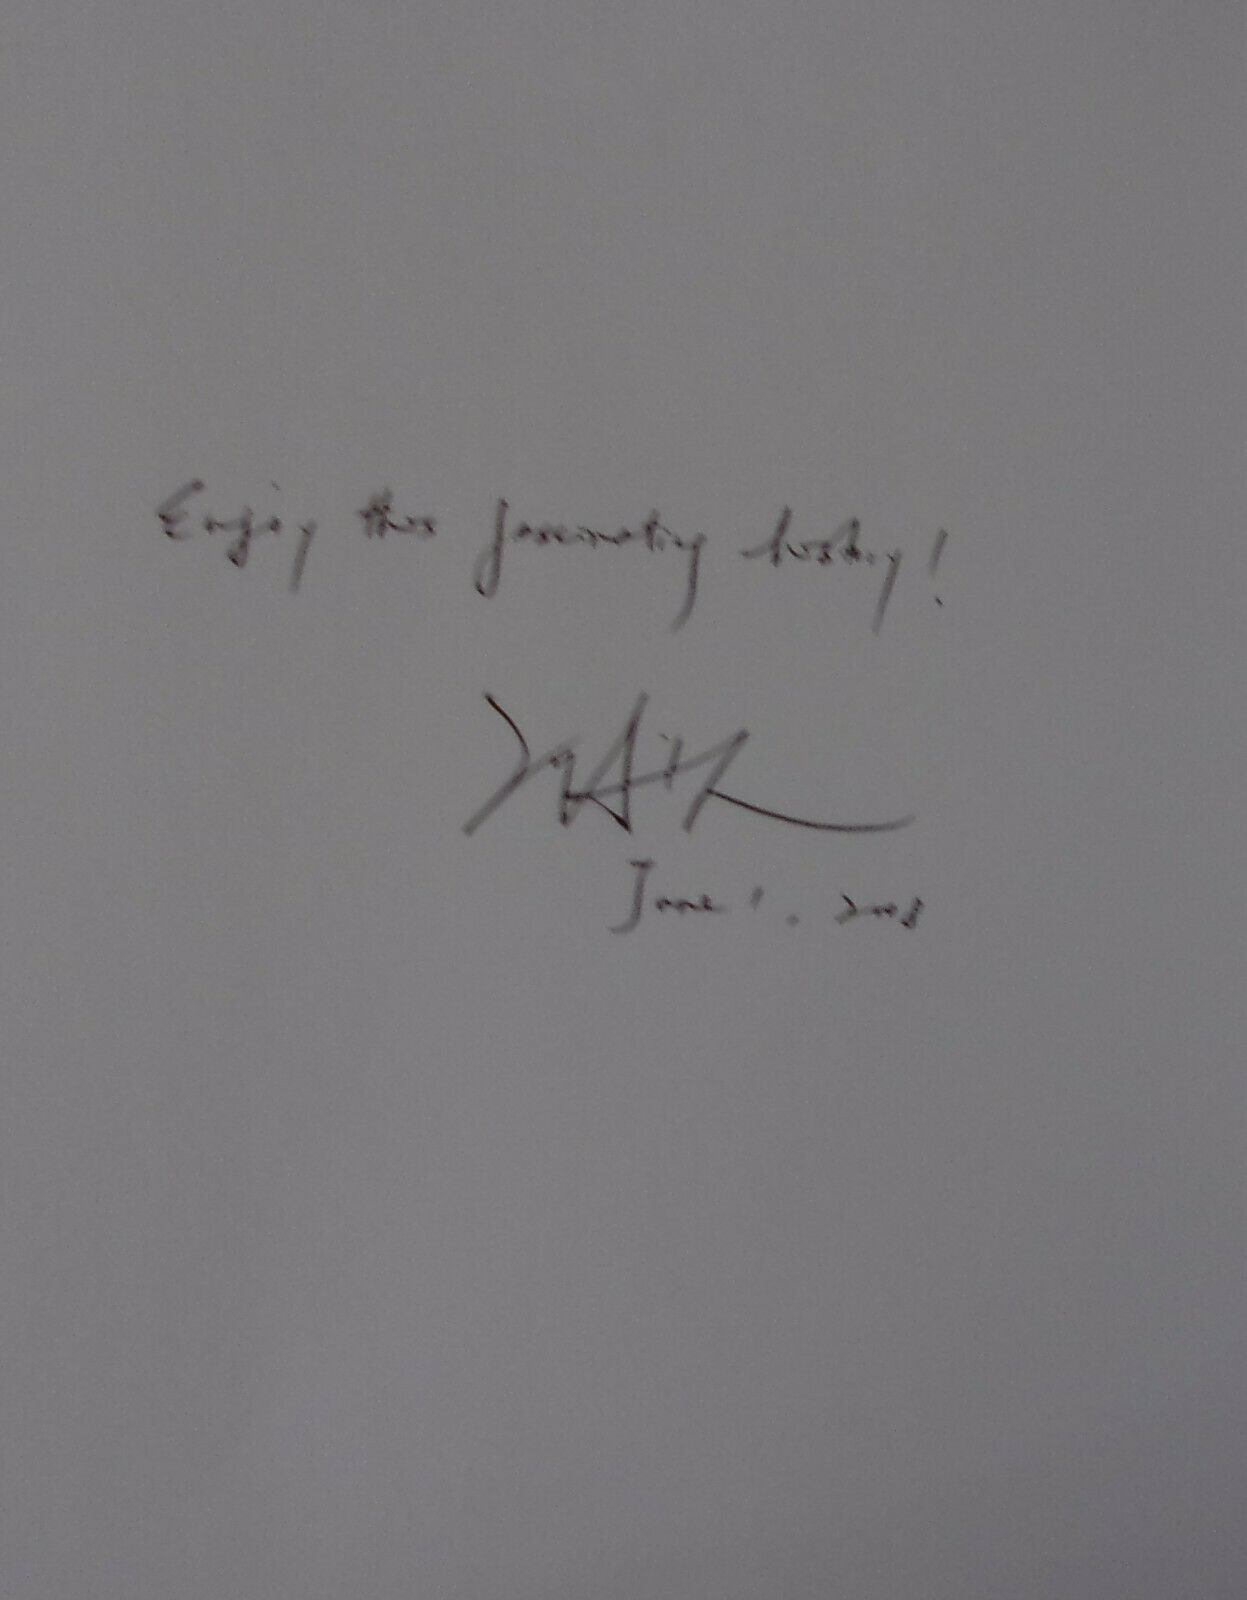 Enjoy this fascinating history!
June 1, 2008